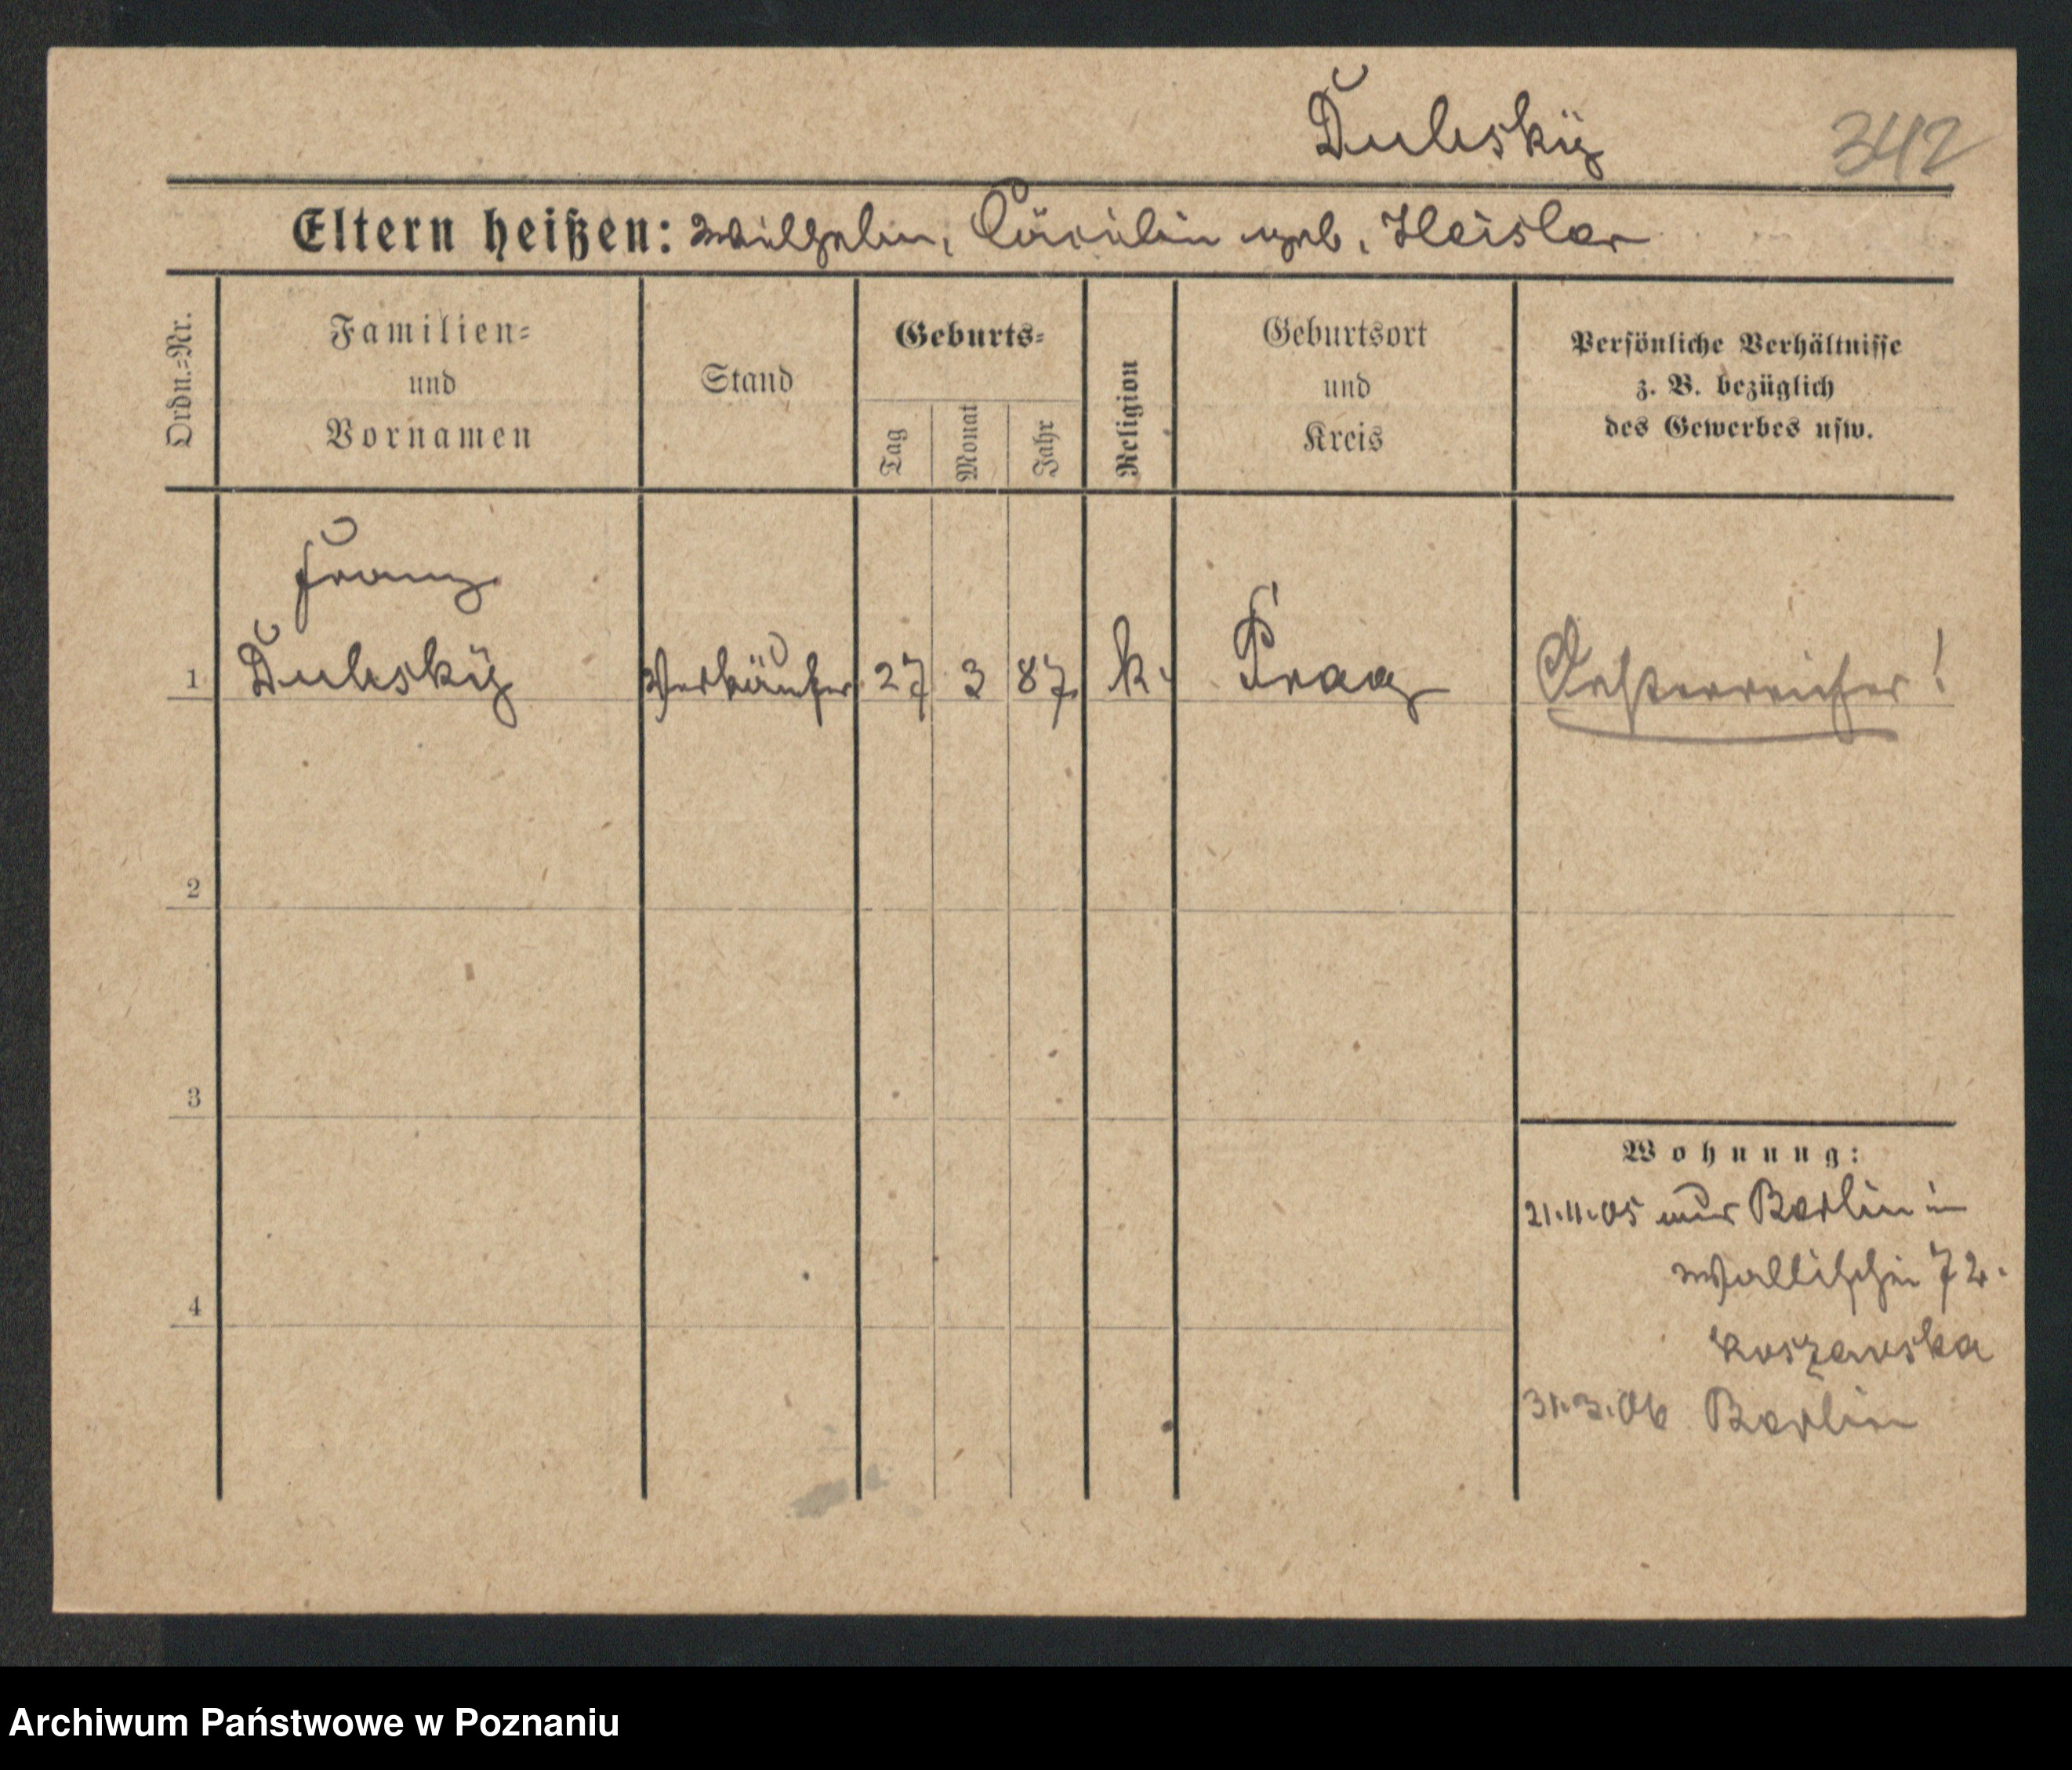 Dubsky 342
Eltern heißen: Wilhelm, Cäcilie geb. Heisler
Ordn.=Nr.
Familien=
und
Vornamen
Stand
Geburts=
Tag
Monat
Jahr
Religion
Geburtsort
und
Kreis
Persönliche Verhältnisse
z. B. bezüglich
des Gewerbes usw.
Franz
1 Dubsky Verkäufer 27 3 87 k. Prag Oesterreicher!
2
3
4
Wohnung:
21.11.05 aus Berlin in
Wallischei 72.
31.3.06 Berlin
Archiwum Państwowe w Poznaniu